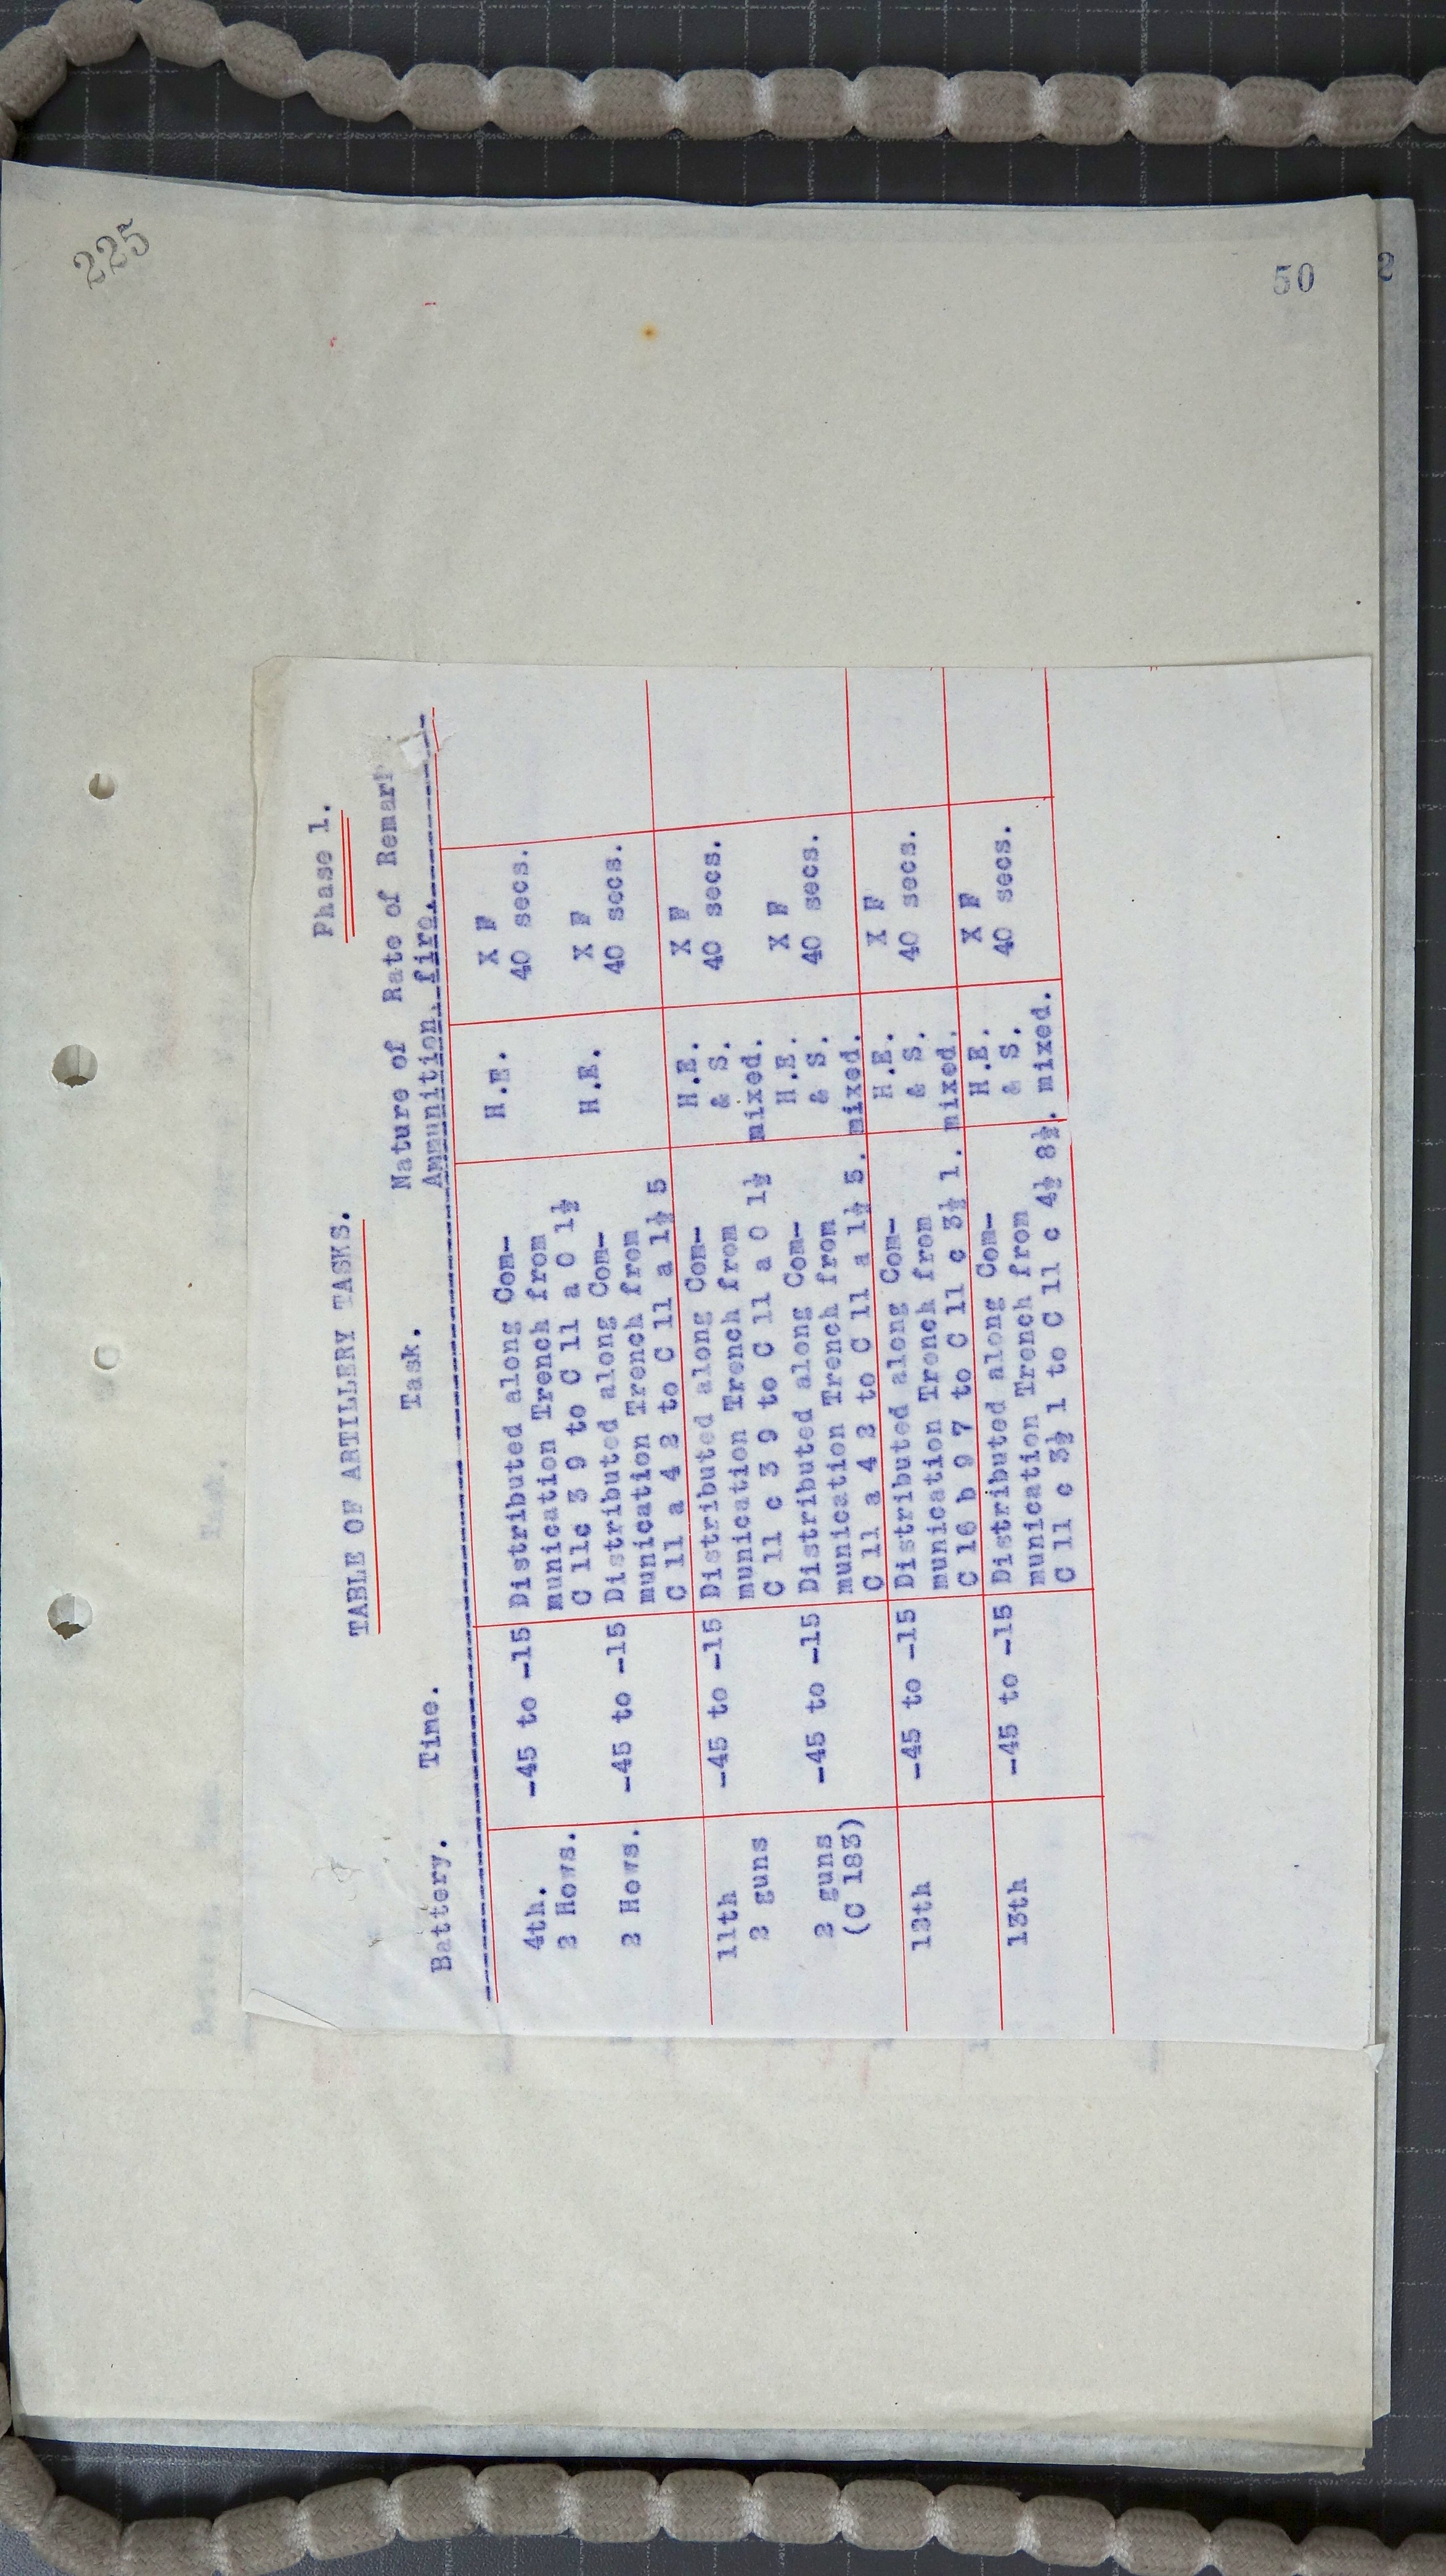 225
50
2
Phase 1.
TABLE OF ARTILLERY TASKS.
Battery. Time. Task. Nature of Rate of Remark
Ammunition. fire.
4th. -45 to -15 Distributed along Com- H.E. X F
2 Hows. munication Trench from 40 secs.
C 11c 3 9 to C 11 a 0 1½
2 Hows. -45 to -15 Distributed along Com- H.E. X F
munication Trench from 40 secs.
C 11 a 4 2 to C 11 a 1½ 5
11th -45 to -15 Distributed along Com- H.E. X F
2 guns munication Trench from & S. 40 secs.
C 11 c 3 9 to C 11 a 0 1½ mixed.
2 guns -45 to -15 Distributed along Com- H.E. X F
(C 183) munication Trench from & S. 40 secs.
C 11 a 4 2 to C 11 a 1½ 5. mixed.
12th -45 to -15 Distributed along Com- H.E. X F
munication Trench from & S. 40 secs.
C 16 b 9 7 to C 11 c 3½ 1. mixed.
13th -45 to -15 Distributed along Com- H.E. X F
munication Trench from & S. 40 secs.
C 11 c 3½ 1 to C 11 c 4½ 8½. mixed.